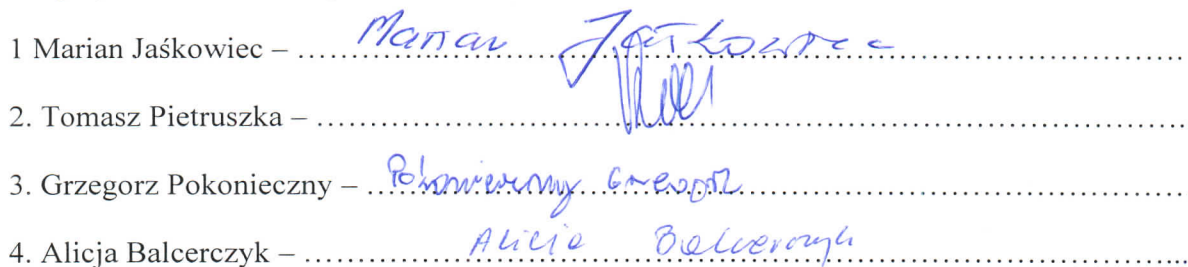 1 Marian Jaśkowiec – .......... Marian Jaśkowiec ..........
2. Tomasz Pietruszka – ....................
3. Grzegorz Pokonieczny – .......... Pokonieczny Grzegorz ..........
4. Alicja Balcerczyk – .......... Alicja Balcerczyk ..........